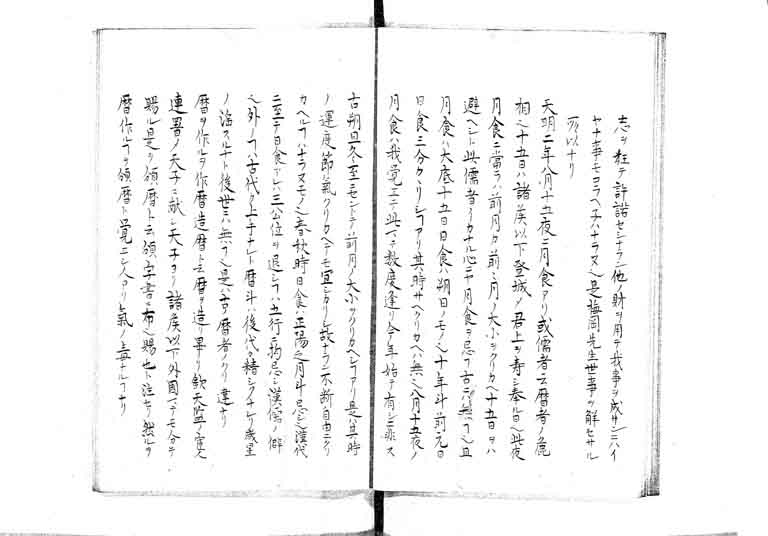 志ヲ枉テ許諾セシナラン他ノ財ヲ用テ我事ヲ成サンニハイ
ヤナ事モコラヘ子ハナラヌ是梅岡先生世事ヲ解セサル
所以ナリ
天明二年八月十五夜ニ月食アリ或儒者云暦者ノ麁
相也十五日ハ諸矦以下登城シ君上ヲ寿シ奉ル日也此夜
月食ニ当ラハ前月カ前々月ノ大小ヲクリカヘ十五日ヲハ
避ヘシト此儒者イカナル心ニテ月食ヲ忌フ古ニハ無フ也且
月食ハ大底十五日日食ハ朔日ノモノ也十年斗前元日
日食三分カヽリシフアリ其時サヘクリカヘハ無シ八月十五夜ノ
月食ハ我覚ニテ此マテ数度逢リ今年始テ有シニ非ス
古朔旦冬至ニセントテハ前月ノ大小ヲクリカヘシフアリ是ハ其時
ノ運度節氣クリカヘテモ宜シカリシ故ナラン不断自由ニクリ
カヘルフハナラヌモノ也春秋時日食ハ正陽之月斗忌シ漢代
ニ至テ日食アレハ三公位ヲ退シフハ五行ニ拘忌シ漢儒ノ僻
之外ノフハ古代カ上手ナレト暦斗ハ後代カ精シクナケリ歳星
ノ溢スルフト後世ニハ無フ也是ハ古暦者ノクリ違ナリ
暦ヲ作ルヲ作暦造暦ト云暦ヲ造リ畢リ欽天監ノ官人
連署シ天子ニ献シ天子ヨリ諸矦以下外國マテモ分テ
賜ル是ヲ頒暦ト云頒字書ニ布也賜也ト注セリ然ルヲ
暦作ルフヲ頒暦ト覚ニシ人アリ氣ノ毒ナルフナリ